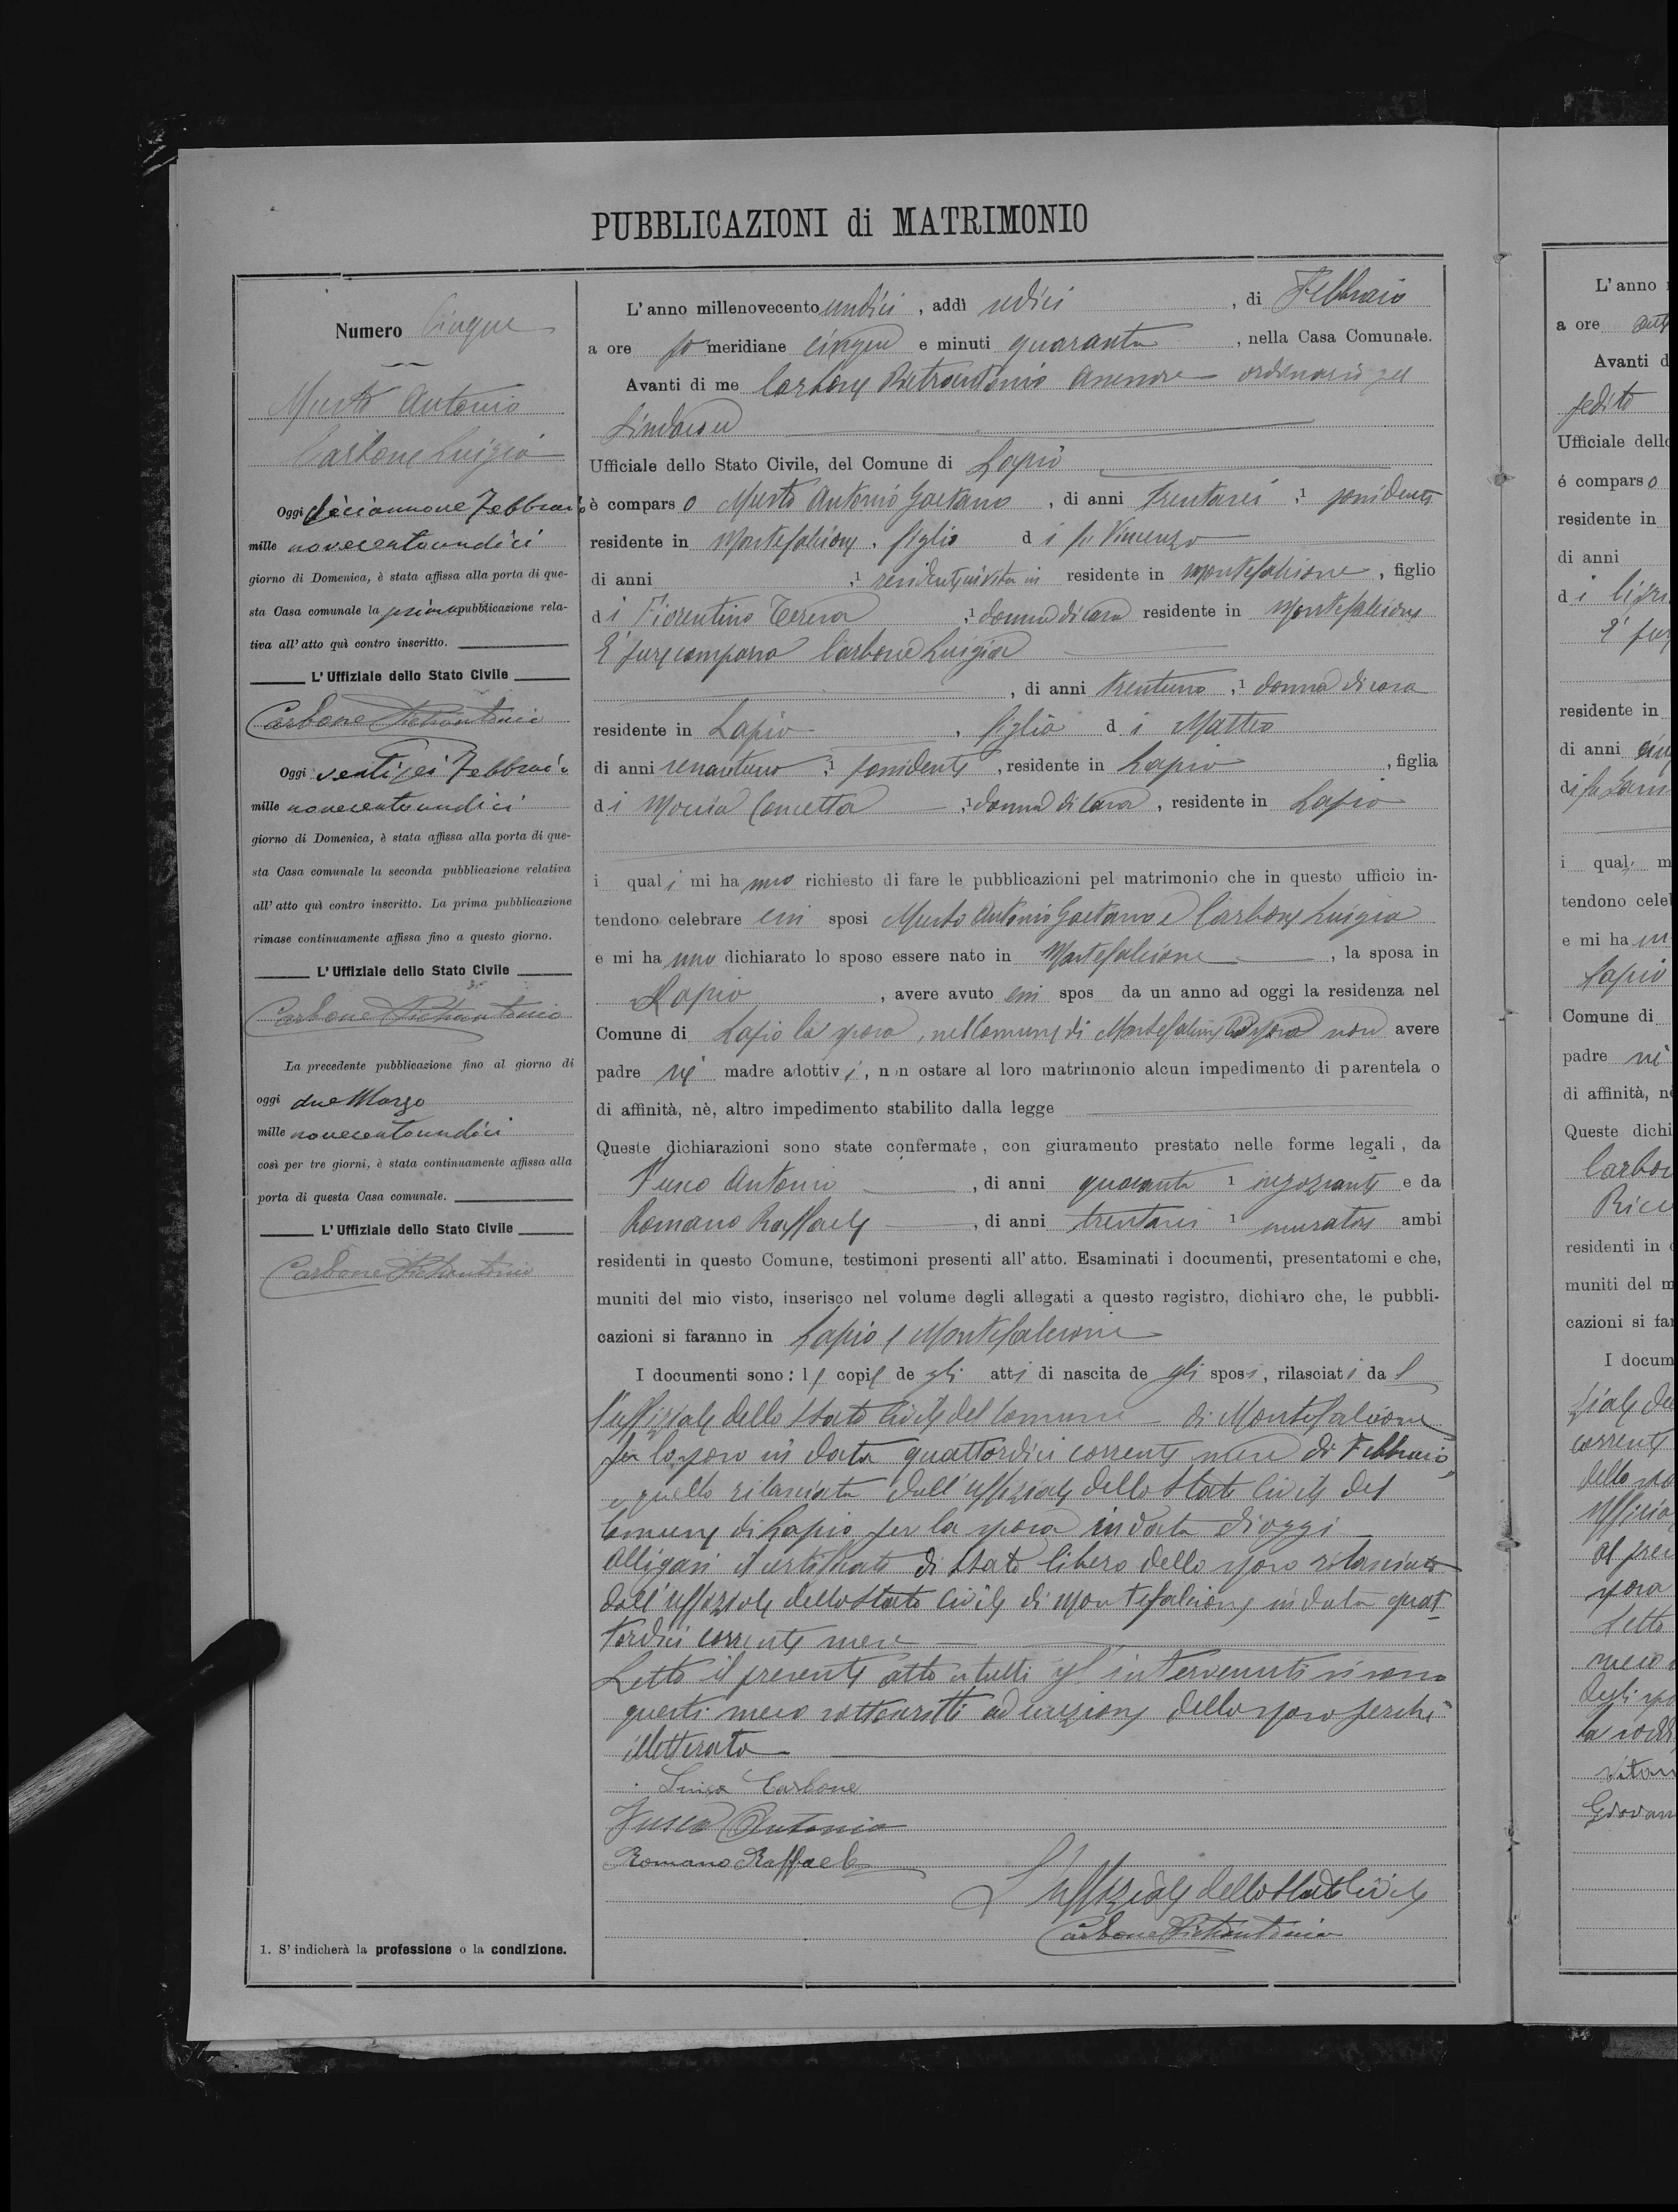 PUBBLICAZIONI di MATRIMONIO
Numero Cinque
Musto Antonio
Carbone Luigia
Oggi diciannove Febbraio
mille novecentoundici
giorno di Domenica, è stata affissa alla porta di que-
sta Casa comunale la prima pubblicazione rela-
tiva all' atto quì contro inscritto.
L' Uffiziale dello Stato Civile
Carbone Pietrantonio
Oggi ventisei Febbraio
mille novecentoundici
giorno di Domenica, è stata affissa alla porta di que-
sta Casa comunale la seconda pubblicazione relativa
all' atto quì contro inscritto. La prima pubblicazione
rimase continuamente affissa fino a questo giorno.
L' Uffiziale dello Stato Civile
Carbone Pietrantonio
La precedente pubblicazione fino al giorno di
oggi due Marzo
mille novecentoundici
così per tre giorni, è stata continuamente affissa alla
porta di questa Casa comunale.
L' Uffiziale dello Stato Civile
Carbone Pietrantonio
1. S' indicherà la professione o la condizione.
L' anno millenovecento undici , addì sedici , di Febbraio
a ore po meridiane cinque e minuti quaranta , nella Casa Comunale.
Avanti di me Carbone Pietrantonio Assessore ordinario pel
Sindaco
Ufficiale dello Stato Civile, del Comune di Lapio
è compars o Musto Antonio Gaetano , di anni trentasei ,1 possidente
residente in Montefalcione , figlio d i fu Vincenzo
di anni ,1 residente in vita in residente in Montefalcione , figlio
d i Fiorentino Teresa ,1 donna di casa residente in Montefalcione
È pure comparsa Carbone Luigia
, di anni trentuno ,1 donna di casa
residente in Lapio , figlia d i Matteo
di anni sessantuno ,1 possidente , residente in Lapio , figlia
d i Moccia Concetta ,1 donna di casa , residente in Lapio
i quali mi hanno richiesto di fare le pubblicazioni pel matrimonio che in questo ufficio in-
tendono celebrare essi sposi Musto Antonio Gaetano e Carbone Luigia
e mi hanno dichiarato lo sposo essere nato in Montefalcione , la sposa in
Lapio , avere avuto essi spos da un anno ad oggi la residenza nel
Comune di Lapio la sposa, nel Comune di Montefalcione lo sposo non avere
padre nè madre adottivi, non ostare al loro matrimonio alcun impedimento di parentela o
di affinità, nè, altro impedimento stabilito dalla legge
Queste dichiarazioni sono state confermate, con giuramento prestato nelle forme legali, da
Fusco Antonio , di anni quaranta 1 negoziante e da
Romano Raffaele , di anni trentasei 1 muratore ambi
residenti in questo Comune, testimoni presenti all' atto. Esaminati i documenti, presentatomi e che,
muniti del mio visto, inserisco nel volume degli allegati a questo registro, dichiaro che, le pubbli-
cazioni si faranno in Lapio e Montefalcione
I documenti sono: le copie de gli atti di nascita de gli sposi, rilasciati da l
l'uffiziale dello Stato Civile del Comune di Montefalcione
per lo sposo in data quattordici corrente mese di Febbraio,
e quello rilasciato dall'uffiziale dello Stato Civile del
Comune di Lapio per la sposa in data di oggi
Alligasi il certificato di Stato libero dello sposo rilasciato
dall'uffiziale dello Stato Civile di Montefalcione in data quat-
tordici corrente mese
Letto il presente atto a tutti gl' intervenuti si sono
questi meco sottoscritti ad eccezione dello sposo perchè
illetterato
Luigia Carbone
Fusco Antonio
Romano Raffaele
L'uffiziale dello Stato Civile
Carbone Pietrantonio
L' anno
a ore
Avanti d
Ufficiale dello
é compars o
residente in
di anni
residente in
di anni
i quali m
tendono cele
e mi ha
Lapio
Comune di
padre nè
di affinità, n
Queste dichi
residenti in
muniti del m
cazioni si fa
I docum
corrente
sposa
Letto